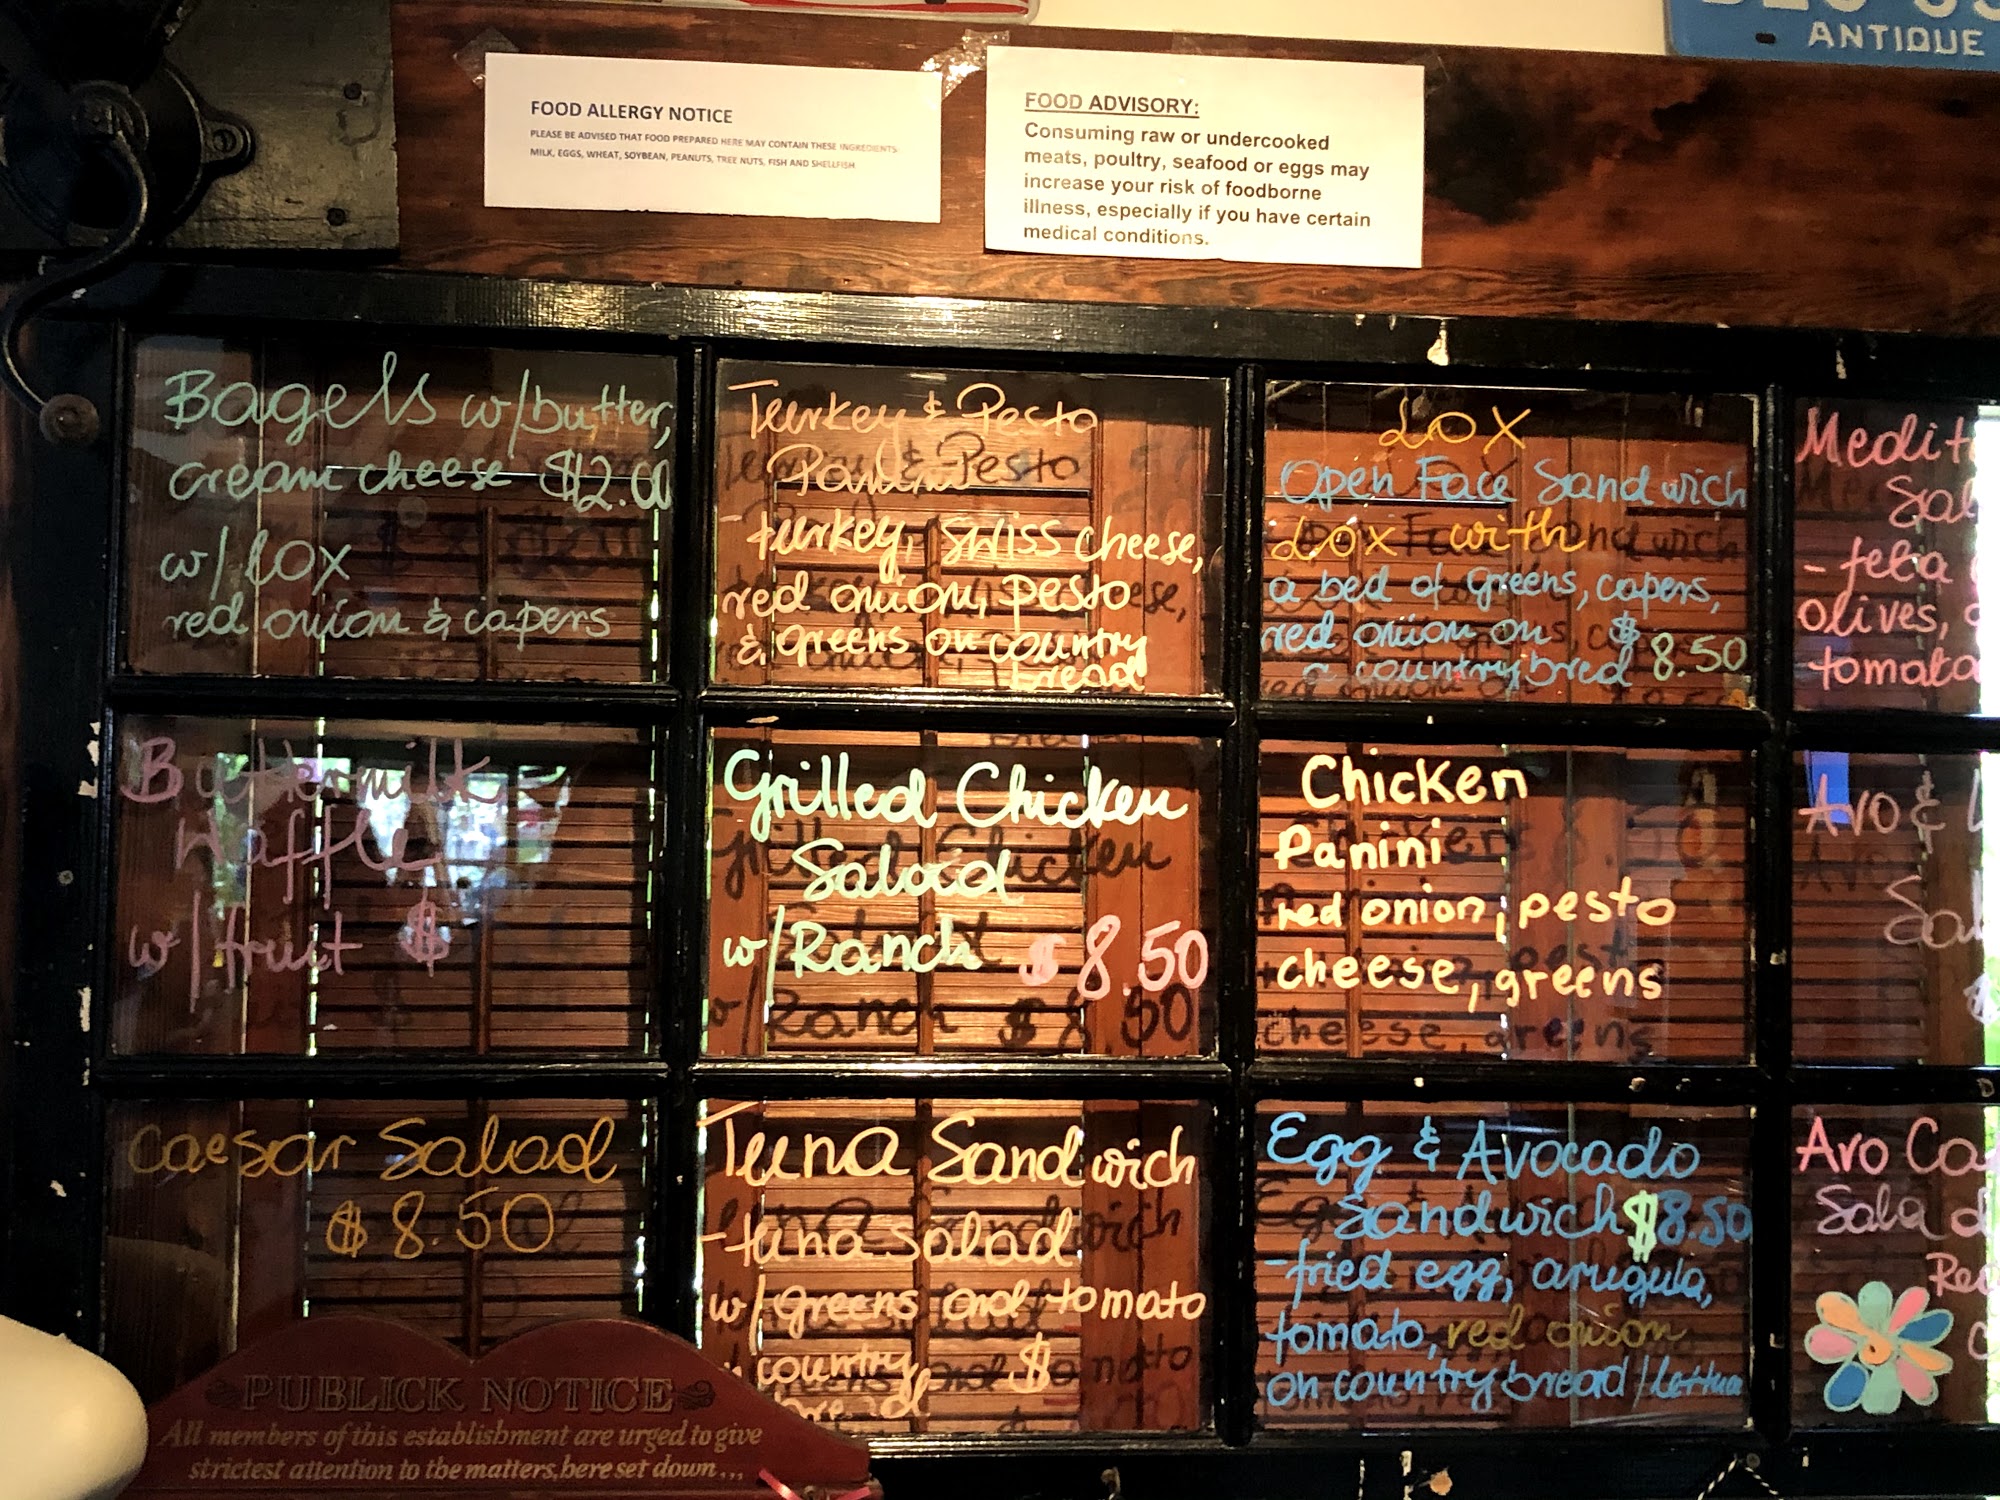 ANTIQUE
FOOD ALLERGY NOTICE
PLEASE BE ADVISED THAT FOOD PREPARED HERE MAY CONTAIN THESE INGREDIENTS:
MILK, EGGS, WHEAT, SOYBEAN, PEANUTS, TREE NUTS, FISH AND SHELLFISH
FOOD ADVISORY:
Consuming raw or undercooked
meats, poultry, seafood or eggs may
increase your risk of foodborne
illness, especially if you have certain
medical conditions.
Bagels w/butter,
cream cheese $2.00
w/ lox
red onion & capers
Turkey & Pesto
Panini
-turkey, swiss cheese,
red onion, pesto
& greens on country
bread
LOX
Open Face Sandwich
Lox with
a bed of greens, capers,
red onion on $8.50
a country bred
- feta
olives,
Buttermilk
Waffle
w/ fruit $
Grilled Chicken
Salad
w/ Ranch $8.50
Chicken
Panini
red onion, pesto
cheese, greens
Avo &
Caesar Salad
$8.50
Tuna Sandwich
-tuna salad
w/ greens and tomato
country $
bread
Egg & Avocado
Sandwich $8.50
-fried egg, arugula,
tomato, red onion
on country bread /lettuce
Avo
Salad
PUBLICK NOTICE
All members of this establishment are urged to give
strictest attention to the matters, here set down...